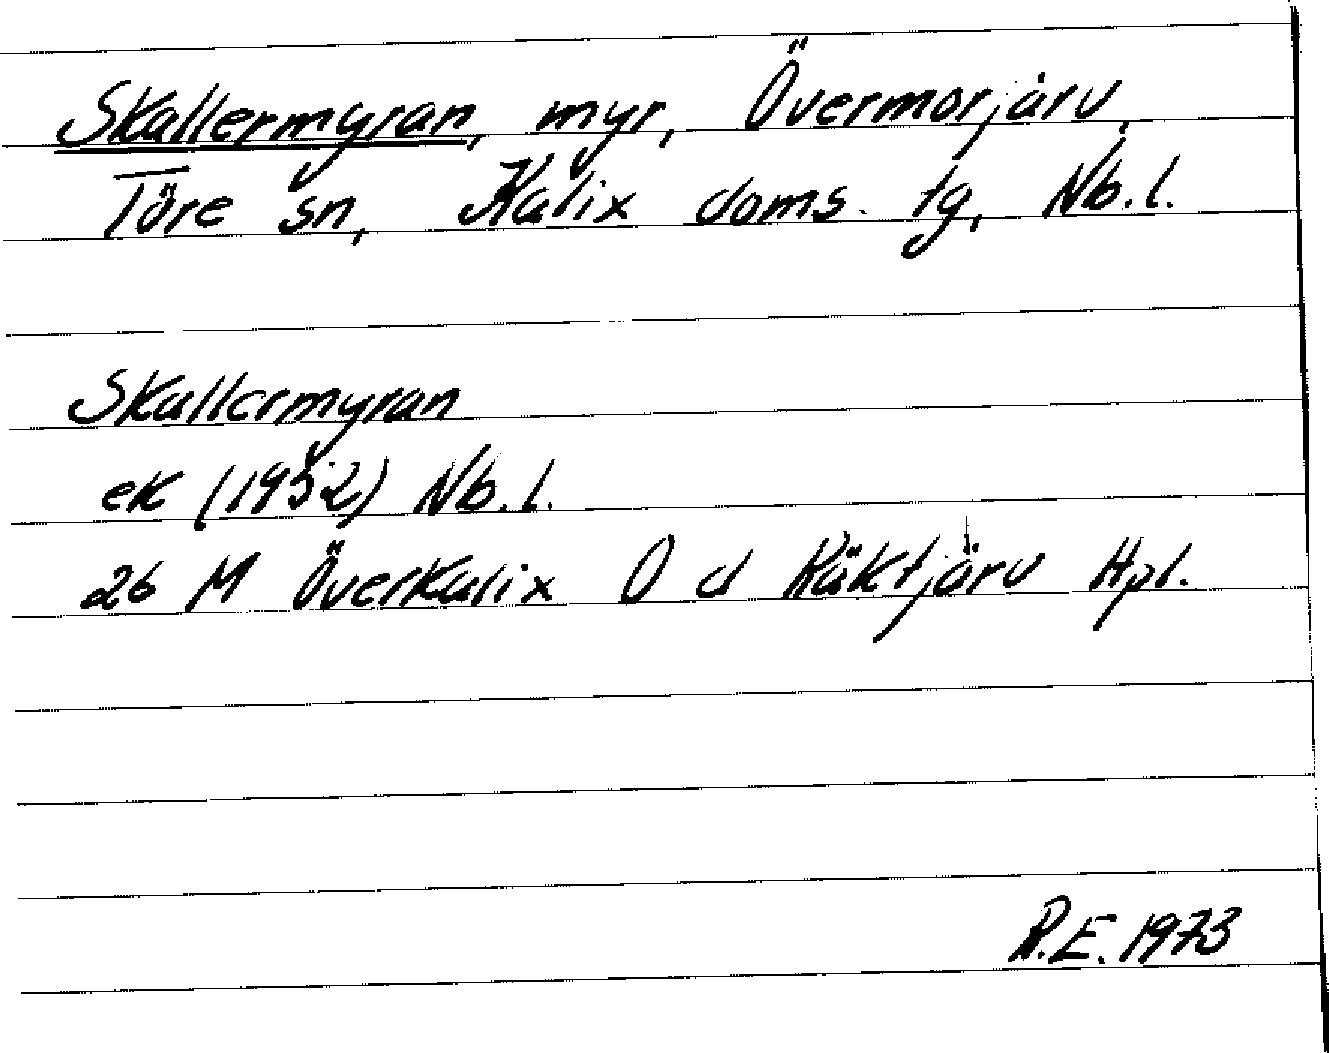 Skallermyran, myr, Övermorjärv,
Töre sn, Kalix doms. tg, Nb.l.
Skallermyran
ek (1952) Nb.l.
26 M Överkalix O d Räktjärv Hpl.
R.E. 1973